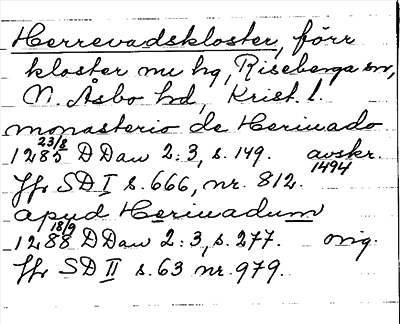 Herrevadskloster, förr
kloster nu hg, Riseberga sn,
N. Åsbo hd, Krist. l.
monasterio de Heriuado
1285 23/8 DDan 2:3, s. 149. avskr. 1494
Jfr SD I s. 666, nr. 812.
apud Heriuadum
1288 18/9 DDan 2:3, s. 277. orig.
Jfr SD II s. 63 nr. 979.